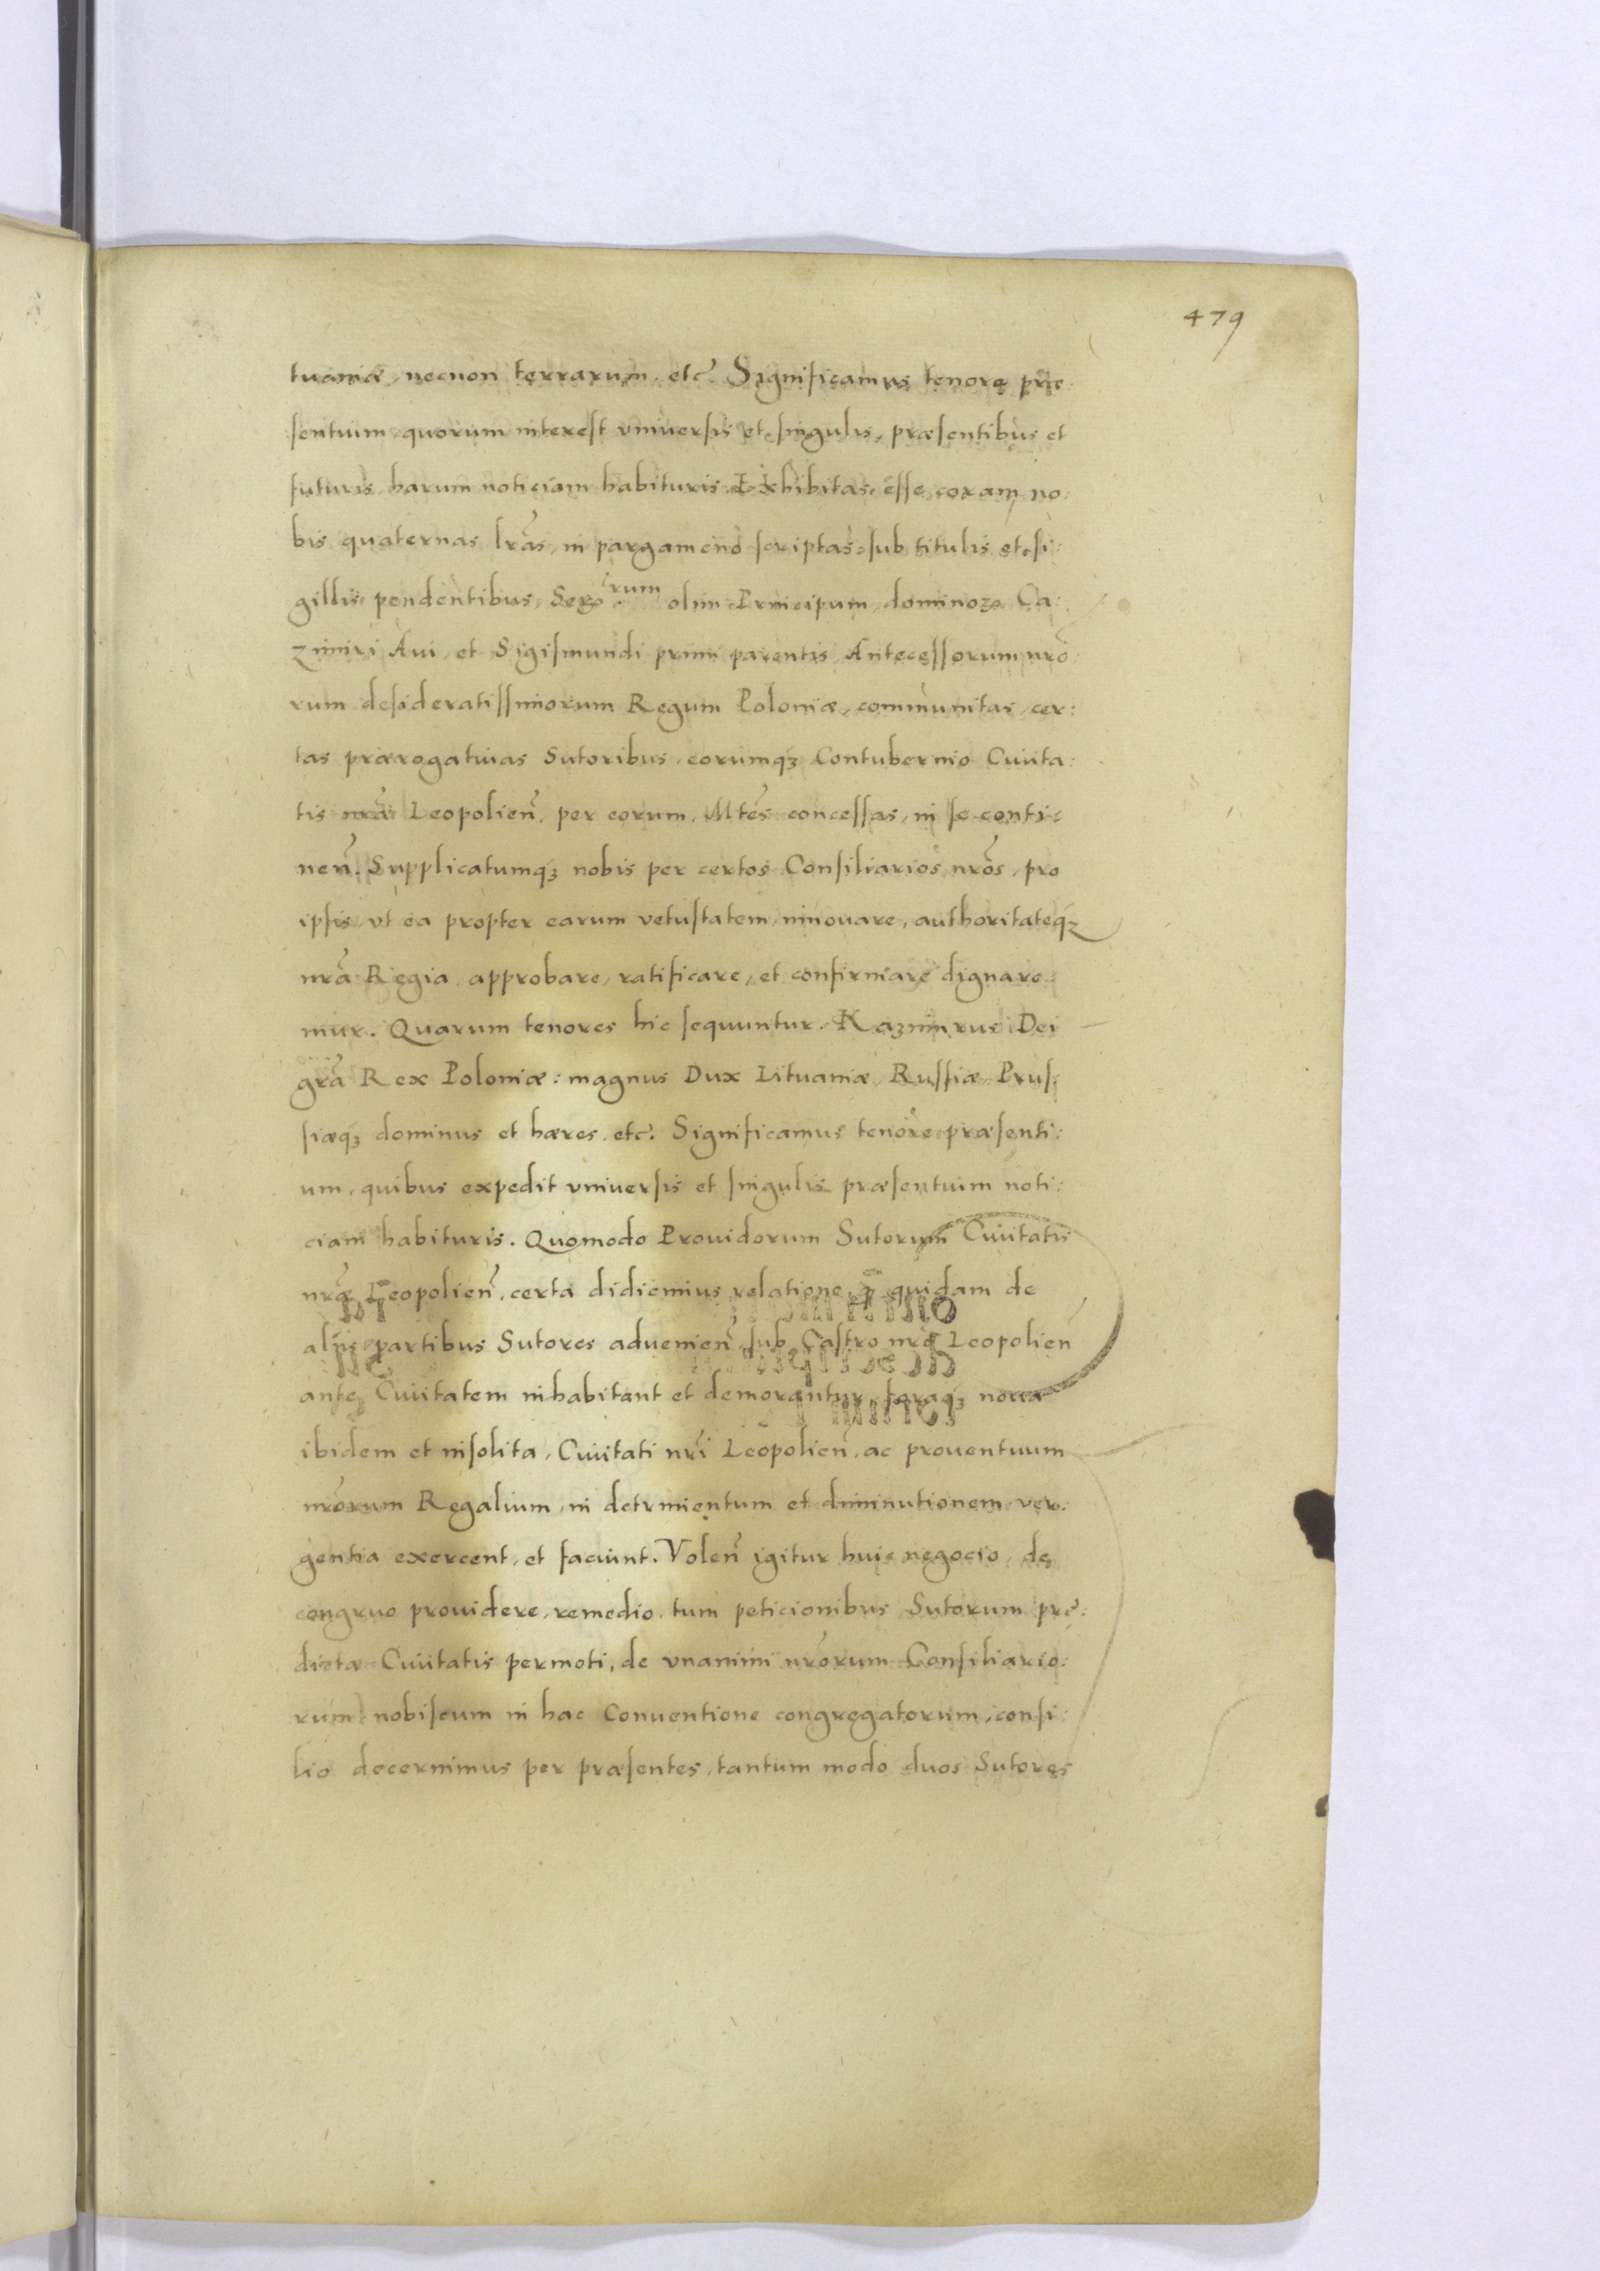 479
tuaniæ, necnon terrarum, etc̃. Significamus tenore præ:
sentium quorum interest vniuersis et singulis, præsentibus et
futuris, harum noticiam habituris. Exhibitas esse coram no:
bis quaternas lr̃as, in pargameno scriptas, sub titulis et si:
gillis pendentibus, Serꝫ rum olim Principum, dominoꝝ Ca:
zimiri Aui, et Sigismundi primi parentis Antecessorum nr̃o
rum desideratissimorum Regum Poloniæ, communitas, cer:
tas prærogatiuas Sutoribus, eorumqꝫ Contubernio Ciuita:
tis nr̃æ Leopolien̄, per eorum Mtẽs concessas, in se conti:
nen̄. Supplicatumqꝫ nobis per certos Consiliarios nr̃os, pro
ipsis vt ea propter earum vetustatem innouare, authoritateqꝫ
nr̃a Regia approbare, ratificare, et confirmare dignare:
mur. Quarum tenores hic sequuntur. Kazimirus Dei
gr̃a Rex Poloniæ: magnus Dux Lituaniæ, Russiæ, Prus:
siæqꝫ dominus et hæres, etc̃. Significamus tenore præsenti:
um, quibus expedit vniuersis et singulis præsentium noti:
ciam habituris. Quomodo Prouidorum Sutorum Ciuitatis
nr̃æ Leopolien̄, certa didicimus relatione, quidam de
alijs partibus Sutores aduenien̄, sub Castro nr̃o Leopolien̄
ante Ciuitatem inhabitant et demorantur, foraqꝫ noua
ibidem et insolita, Ciuitati nr̃i Leopolien̄, ac prouentuum
nr̃orum Regalium, in detrimentum et diminutionem ver:
gentia exercent, et faciunt. Volen̄ igitur huic negocio, de
congruo prouidere, remedio, tum peticionibus Sutorum præ:
dictæ Ciuitatis permoti, de vnanimi nr̃orum Consiliario:
rum nobiscum in hac Conuentione congregatorum, consi:
lio decernimus per præsentes, tantum modo duos Sutores